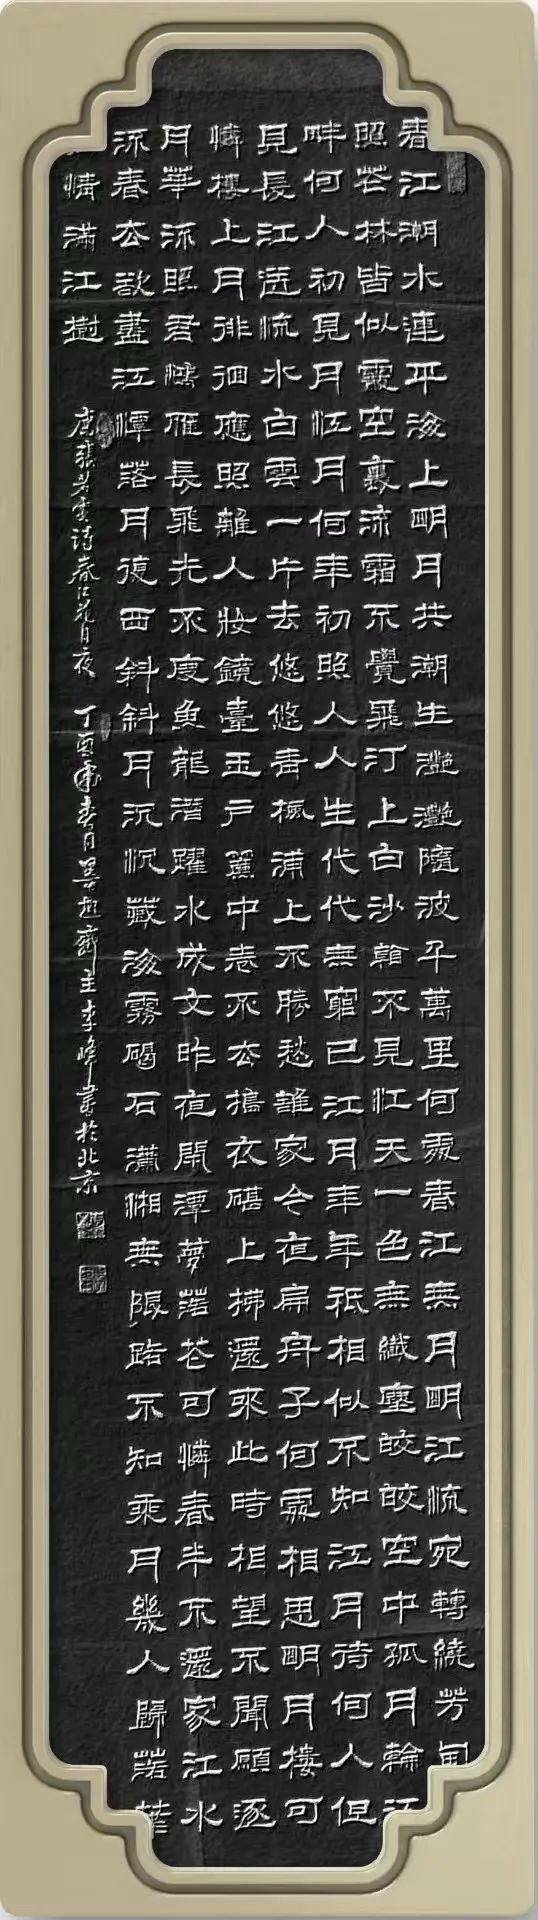 春江潮水連平海上明月共潮生灧灧隨波千萬里何處春江無月明江流宛轉繞芳甸
照花林皆似霰空裏流霜不覺飛汀上白沙看不見江天一色無纖塵皎皎空中孤月輪江
畔何人初見月江月何年初照人人生代代無窮已江月年年祇相似不知江月待何人但
見長江送流水白雲一片去悠悠青楓浦上不勝愁誰家今夜扁舟子何處相思明月樓可
憐樓上月徘徊應照離人妝鏡臺玉戶簾中卷不去搗衣砧上拂還來此時相望不聞願逐
月華流照君鴻雁長飛光不度魚龍潛躍水成文昨夜閒潭夢落花可憐春半不還家江水
流春去欲盡江潭落月復西斜斜月沉沉藏海霧碣石瀟湘無限路不知乘月幾人歸落
情滿江樹
唐張若虛詩春江花月夜 丁酉春月墨趣齋主李峰書於北京